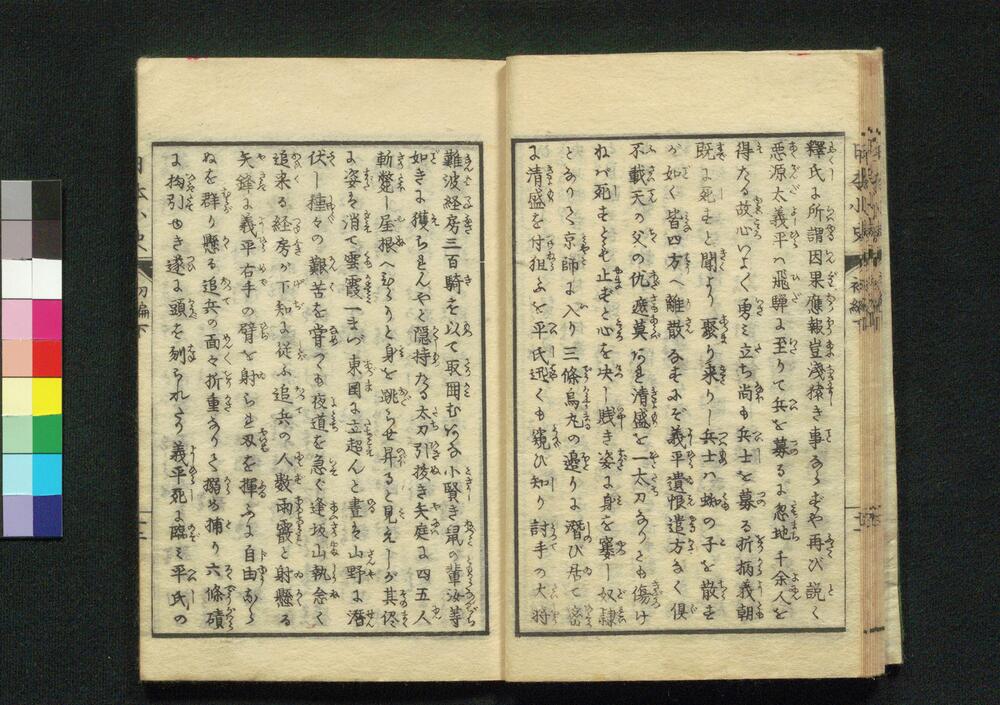 釋氏に所謂因果應報豈淺猿き事ならずや再び説く
惡源太義平ハ飛驒に至りて兵を募るに忽地千余人を
得たる故心いよく勇ミ立ち尚も兵士を募る折柄義朝
既に死すと聞より聚り來りし兵士ハ蜘の子を散す
が如く皆四方へ離散なすにぞ義平遺恨遣方なく倶
不載天の父の仇遮莫あれ清盛を一太刀なりとも傷け
ねバ死すとも止ずと心を决し賎き姿に身を窶し奴隷
となりて京師に入り三條烏丸の邉りに潛び居て密
に清盛を付狙ふを平氏迅くも窺ひ知り討手の大將
難波経房三百騎を以て取囲むいかな小賢き鼠の輩汝等
如きに獲られんやと隠持たる太刀引拔き矢庭に四五人
斬斃し屋根へひらりと身を跳らせ昇ると見えしが其侭
に姿を消て雲霞一まづ東国に立超んと晝ハ山野に潛
伏し種々の艱苦を甞つも夜道を急ぐ逢坂山執念く
追来る経房が下知に従ふ追兵の人数雨霰と射懸る
矢鋒に義平右手の臂を射られ刄を揮ふに自由なら
ぬを群り懸る追兵の面々折重なりて搦め捕り六條磧
に拘引ゆき遂に頭を刎られたり義平死に臨ミ平氏の
日本小史
初編下